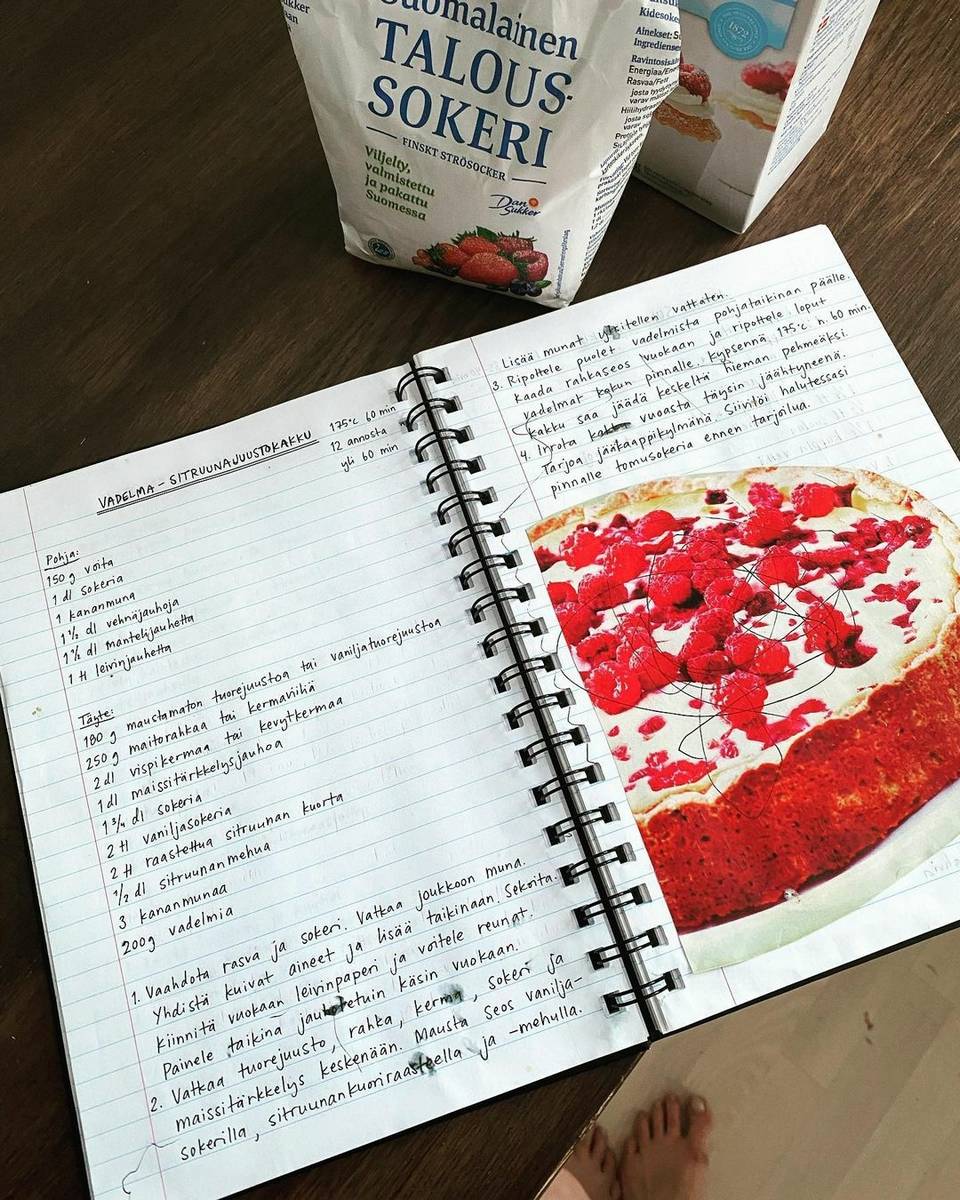 Suomalainen
TALOUS-
SOKERI
FINSKT STRÖSOCKER
Viljelty,
valmistettu
ja pakattu
Suomessa
Dan
Sukker
Kidesoke
Ainekset: S
Ingrediense
Ravintosisä
Energiaa/En
Rasvaa/Fett
josta tyydytty
varav mätta
Hiilihydra
josta so
varav
1872
VADELMA-SITRUUNAJUUSTOKAKKU
175°C 60 min
12 annosta
yli 60 min
Pohja:
150 g voita
1 dl sokeria
1 kananmuna
1½ dl vehnäjauhoja
1½ dl mantelijauhetta
1 tl leivinjauhetta
Täyte:
180 g maustamaton tuorejuustoa tai vaniljatuorejuustoa
250 g maitorahkaa tai kermaviiliä
2 dl vispikermaa tai kevytkermaa
1 dl maissitärkkelysjauhoa
1¾ dl sokeria
2 tl vaniljasokeria
2 tl raastettua sitruunan kuorta
½ dl sitruunanmehua
3 kananmunaa
200g vadelmia
1. Vaahdota rasva ja sokeri. Vatkaa joukkoon muna.
Yhdistä kuivat aineet ja lisää taikinaan. Sekoita.
Kiinnitä vuokaan leivinpaperi ja voitele reunat.
Painele taikina jauhotetuin käsin vuokaan.
2. Vatkaa tuorejuusto, rahka, kerma, sokeri ja
maissitärkkelys keskenään. Mausta seos vanilja-
sokerilla, sitruunankuoriraasteella ja -mehulla.
Lisää munat yksitellen vatkaten.
3. Ripottele puolet vadelmista pohjataikinan päälle.
kaada rahkaseos vuokaan ja ripottele loput
vadelmat kakun pinnalle. Kypsennä 175°c n. 60 min.
kakku saa jäädä keskeltä hieman pehmeäksi
4. Irrota vuoasta täysin jäähtyneenä.
Tarjoa jääkaappikylmänä. Siivilöi halutessasi
pinnalle tomusokeria ennen tarjoilua.